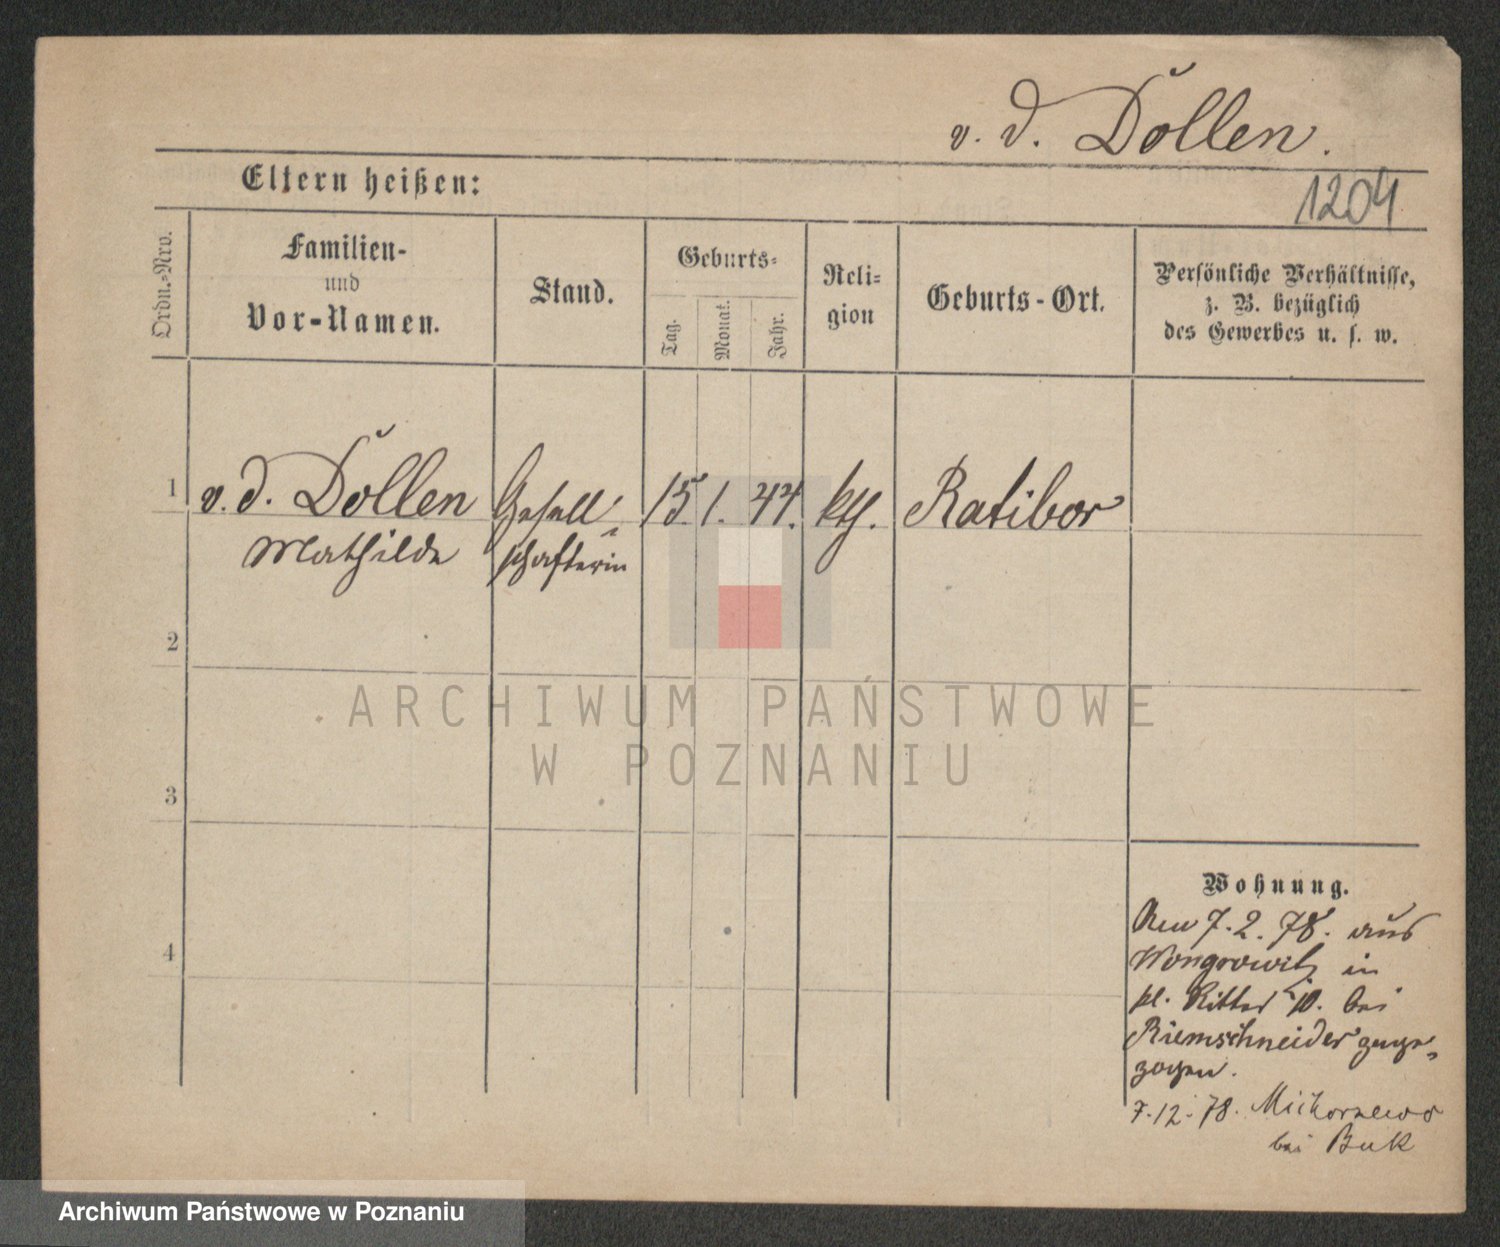 v. d. Döllen.
Eltern heißen:
1204
Ordn.-Nro.
Familien-
und
Vor-Namen.
Stand.
Geburts-
Tag.
Monat.
Jahr.
Reli-
gion
Geburts-Ort.
Persönliche Verhältnisse,
z. B. bezüglich
des Gewerbes u. s. w.
1 v. d. Döllen Gesell- 15. 1. 44. kth. Ratibor
Mathilde schafterin
2
3
4
ARCHIWUM PAŃSTWOWE
W POZNANIU
Wohnung.
Am 7. 2. 78. aus
Wongrowitz in
kl. Ritter 10. bei
Riemschneider zuge-
zogen.
7.12.78. Michorzewo
bei Buk
Archiwum Państwowe w Poznaniu